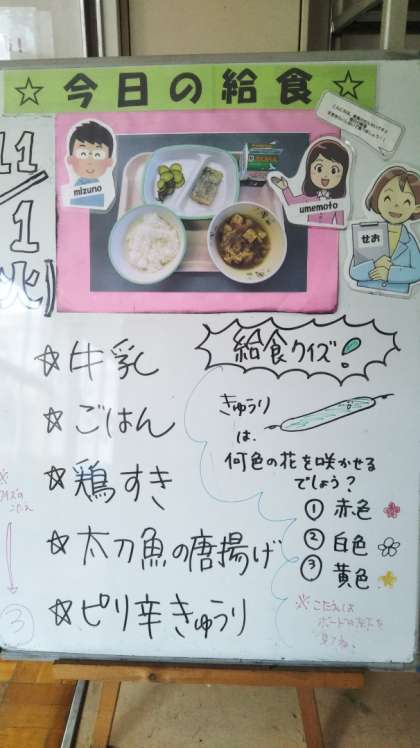 ☆今日の給食☆
11/1
(火)
mizuno
umemoto
せお
☆牛乳
☆ごはん
☆鶏すき
☆太刀魚の唐揚げ
☆ピリ辛きゅうり
給食クイズ!
きゅうり
は、
何色の花を咲かせる
でしょう?
① 赤色
② 白色
③ 黄色
※こたえは
ボードの左下を
見てね。
※
クイズの
こたえ
③